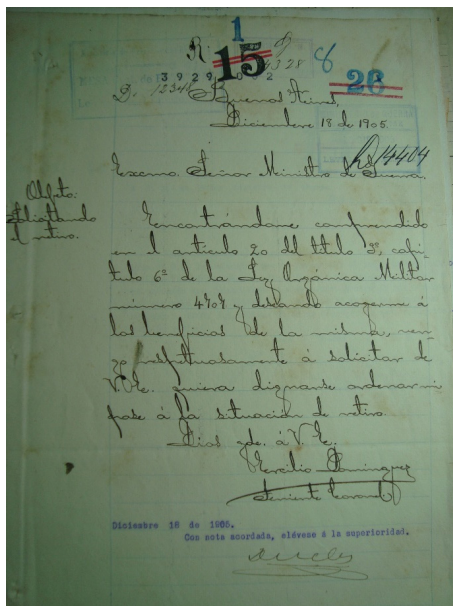 1
R. 15 8
26
D. 12348
Buenos Aires,
Diciembre 18 de 1905.
14404
Excmo. Señor Ministro de Guerra.
Objeto:
Solicitando
el retiro.
Encontrándome comprendido
en el artículo 20 del título 3º, capí-
tulo 6º de la Ley Orgánica Militar
número 4707 y deseando acogerme á
los beneficios de la misma, ven-
go respetuosamente á solicitar de
V.E. quiera dignarse ordenar mi
pase á la situación de retiro.
Dios gde. á V.E.
Ercilio Dominguez
Teniente Coronel
Diciembre 18 de 1905.
Con nota acordada, elévese á la superioridad.